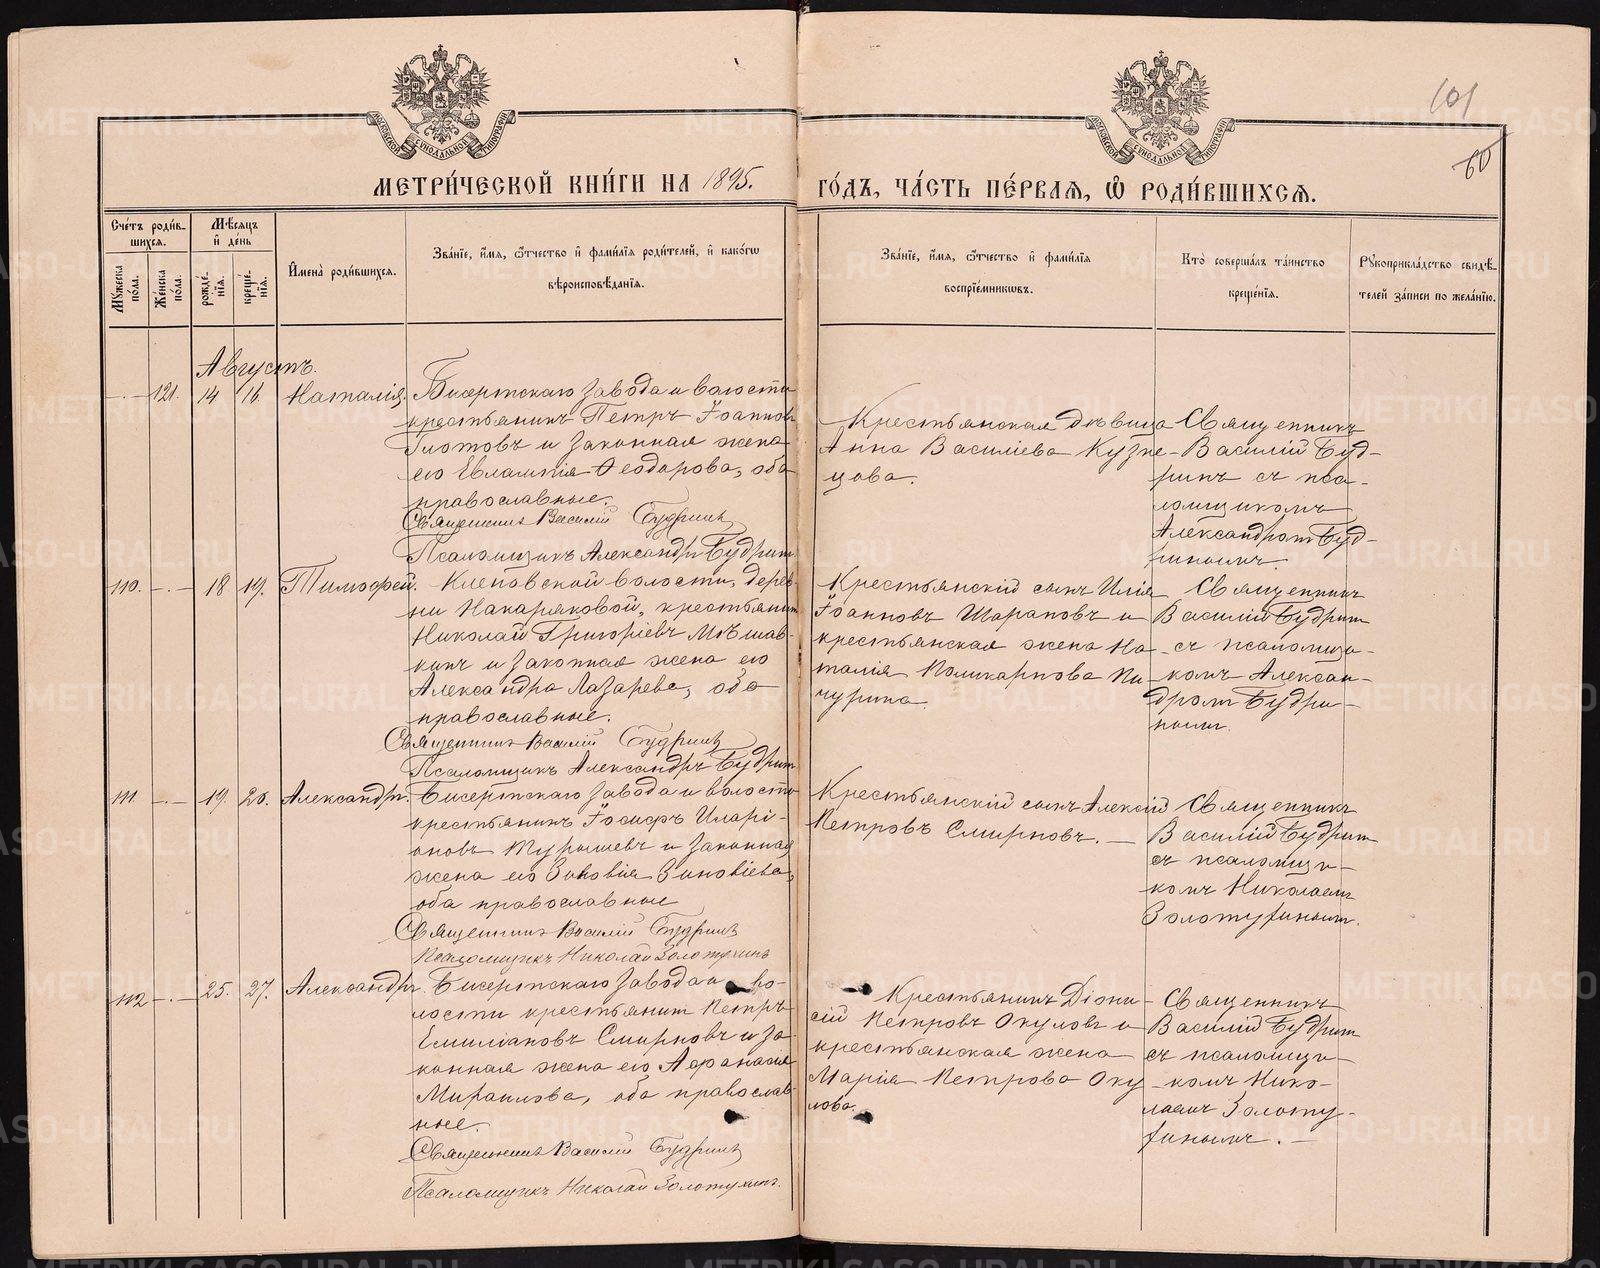 101
60
МЕТРИ́ЧЕСКОЙ КНИ́ГИ НА 1895.
ГО́ДЪ, ЧА́СТЬ ПЕ́РВАЯ, Ѡ҆ РОДИ́ВШИХСЯ.
Сче́тъ роди́в-
шихся.
Мѣ́сяцъ
и҆ де́нь
Му́жеска
по́ла.
Же́нска
по́ла.
рожде́-
нїя.
креще́-
нїя.
И҆мена̀ роди́вшихся.
Зва́нїе, и҆́мя, ѻ҆́тчество и҆ фами́лїя роди́телей, и҆ како́гѡ
вѣроисповѣ́данїя.
Зва́нїе, и҆́мя, ѻ҆́тчество и҆ фами́лїя
воспрїе́мникѡвъ.
Кто̀ соверша́лъ та́инство
креще́нїя.
Рꙋкоприкла́дство свидѣ́-
телей за́писи по жела́нїю.
Августъ.
-.- 121. 14 16. Наталія.
Бисертскаго завода и волости
крестьянинъ Петръ Іоаннов
Глотовъ и законная жена
его Евлампія Ѳеодорова, оба
православные.
Священникъ Василій Будринъ
Псаломщикъ Александръ Будринъ
Крестьянская дѣвица
Анна Василіева Кузне-
цова.
Священникъ
Василій Буд-
ринъ съ пса-
ломщикомъ
Александромъ Буд-
ринымъ.
110. -.- 18 19. Тимофей.
Кленовской волости, дерев-
ни Накаряковой, крестьянинъ
Николай Григоріевъ Мѣшав-
кинъ и законная жена его
Александра Лазарева, оба
православные.
Священникъ Василій Будринъ
Псаломщикъ Александръ Будринъ
Крестьянскій сынъ Илія
Іоанновъ Шараповъ и
крестьянская жена На-
талія Поликарпова Пи-
чурина
Священникъ
Василій Будринъ
съ псаломщи-
комъ Алексан-
дромъ Будри-
нымъ.
111. -.- 19. 20. Александръ.
Бисертскаго завода и волости
крестьянинъ Іосифъ Иларі-
оновъ Турышевъ и законная
жена его Зиновія Зиновіева,
оба православные
Священникъ Василій Будринъ
Псаломщикъ Николай Золотухинъ
Крестьянскій сынъ Алексій
Петровъ Смирновъ. —
Священникъ
Василій Будринъ
съ псаломщи-
комъ Николаемъ
Золотухинымъ.
112 -.- 25. 27. Александръ.
Бисертскаго завода и во-
лости крестьянинъ Петръ
Емиліановъ Смирновъ и за-
конная жена его Аѳанасія
Михаилова, оба православ-
ные.
Священникъ Василій Будринъ
Псаломщикъ Николай Золотухинъ.
Крестьянинъ Діони-
сій Петровъ Окуловъ и
крестьянская жена
Марія Петрова Оку-
лова.
Священникъ
Василій Будринъ
съ псаломщи-
комъ Нико-
лаемъ Золоту-
хинымъ. —